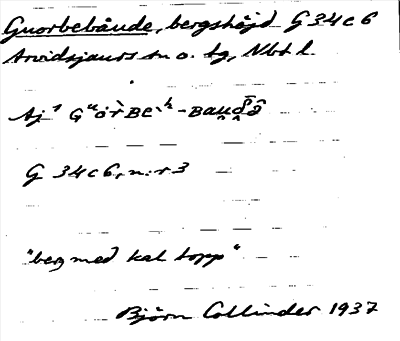 Guorbebåude, bergshöjd G 34 c 6
Arvidsjaurs sn o. tg, Nbt l.
Aj¹ Gᵘȯr̀ʙᴇ·ʰ-Bau̯δ̄ə̂
G 34 c 6, n:r 3
"berg med kal topp"
Björn Collinder 1937